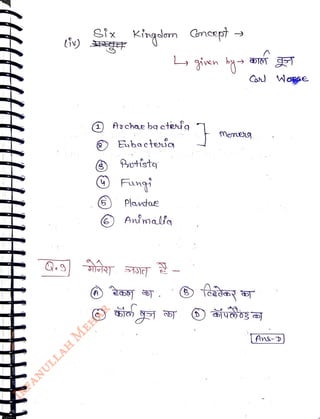 Six Kingdom Concept →
(iv)
↳ given by → कार्ल वूज
Carl Woese
① Archaebacteria
② Eubacteria
] monera
③ Protista
④ Fungi
⑤ Plantae
⑥ Animalia
Q.9 मोनेरा जगत है -
Ⓐ बेकन का . Ⓑ व्हिटेकर का
Ⓒ कॉर्ल वूज का Ⓓ कॉपलैण्ड का
Ans-D